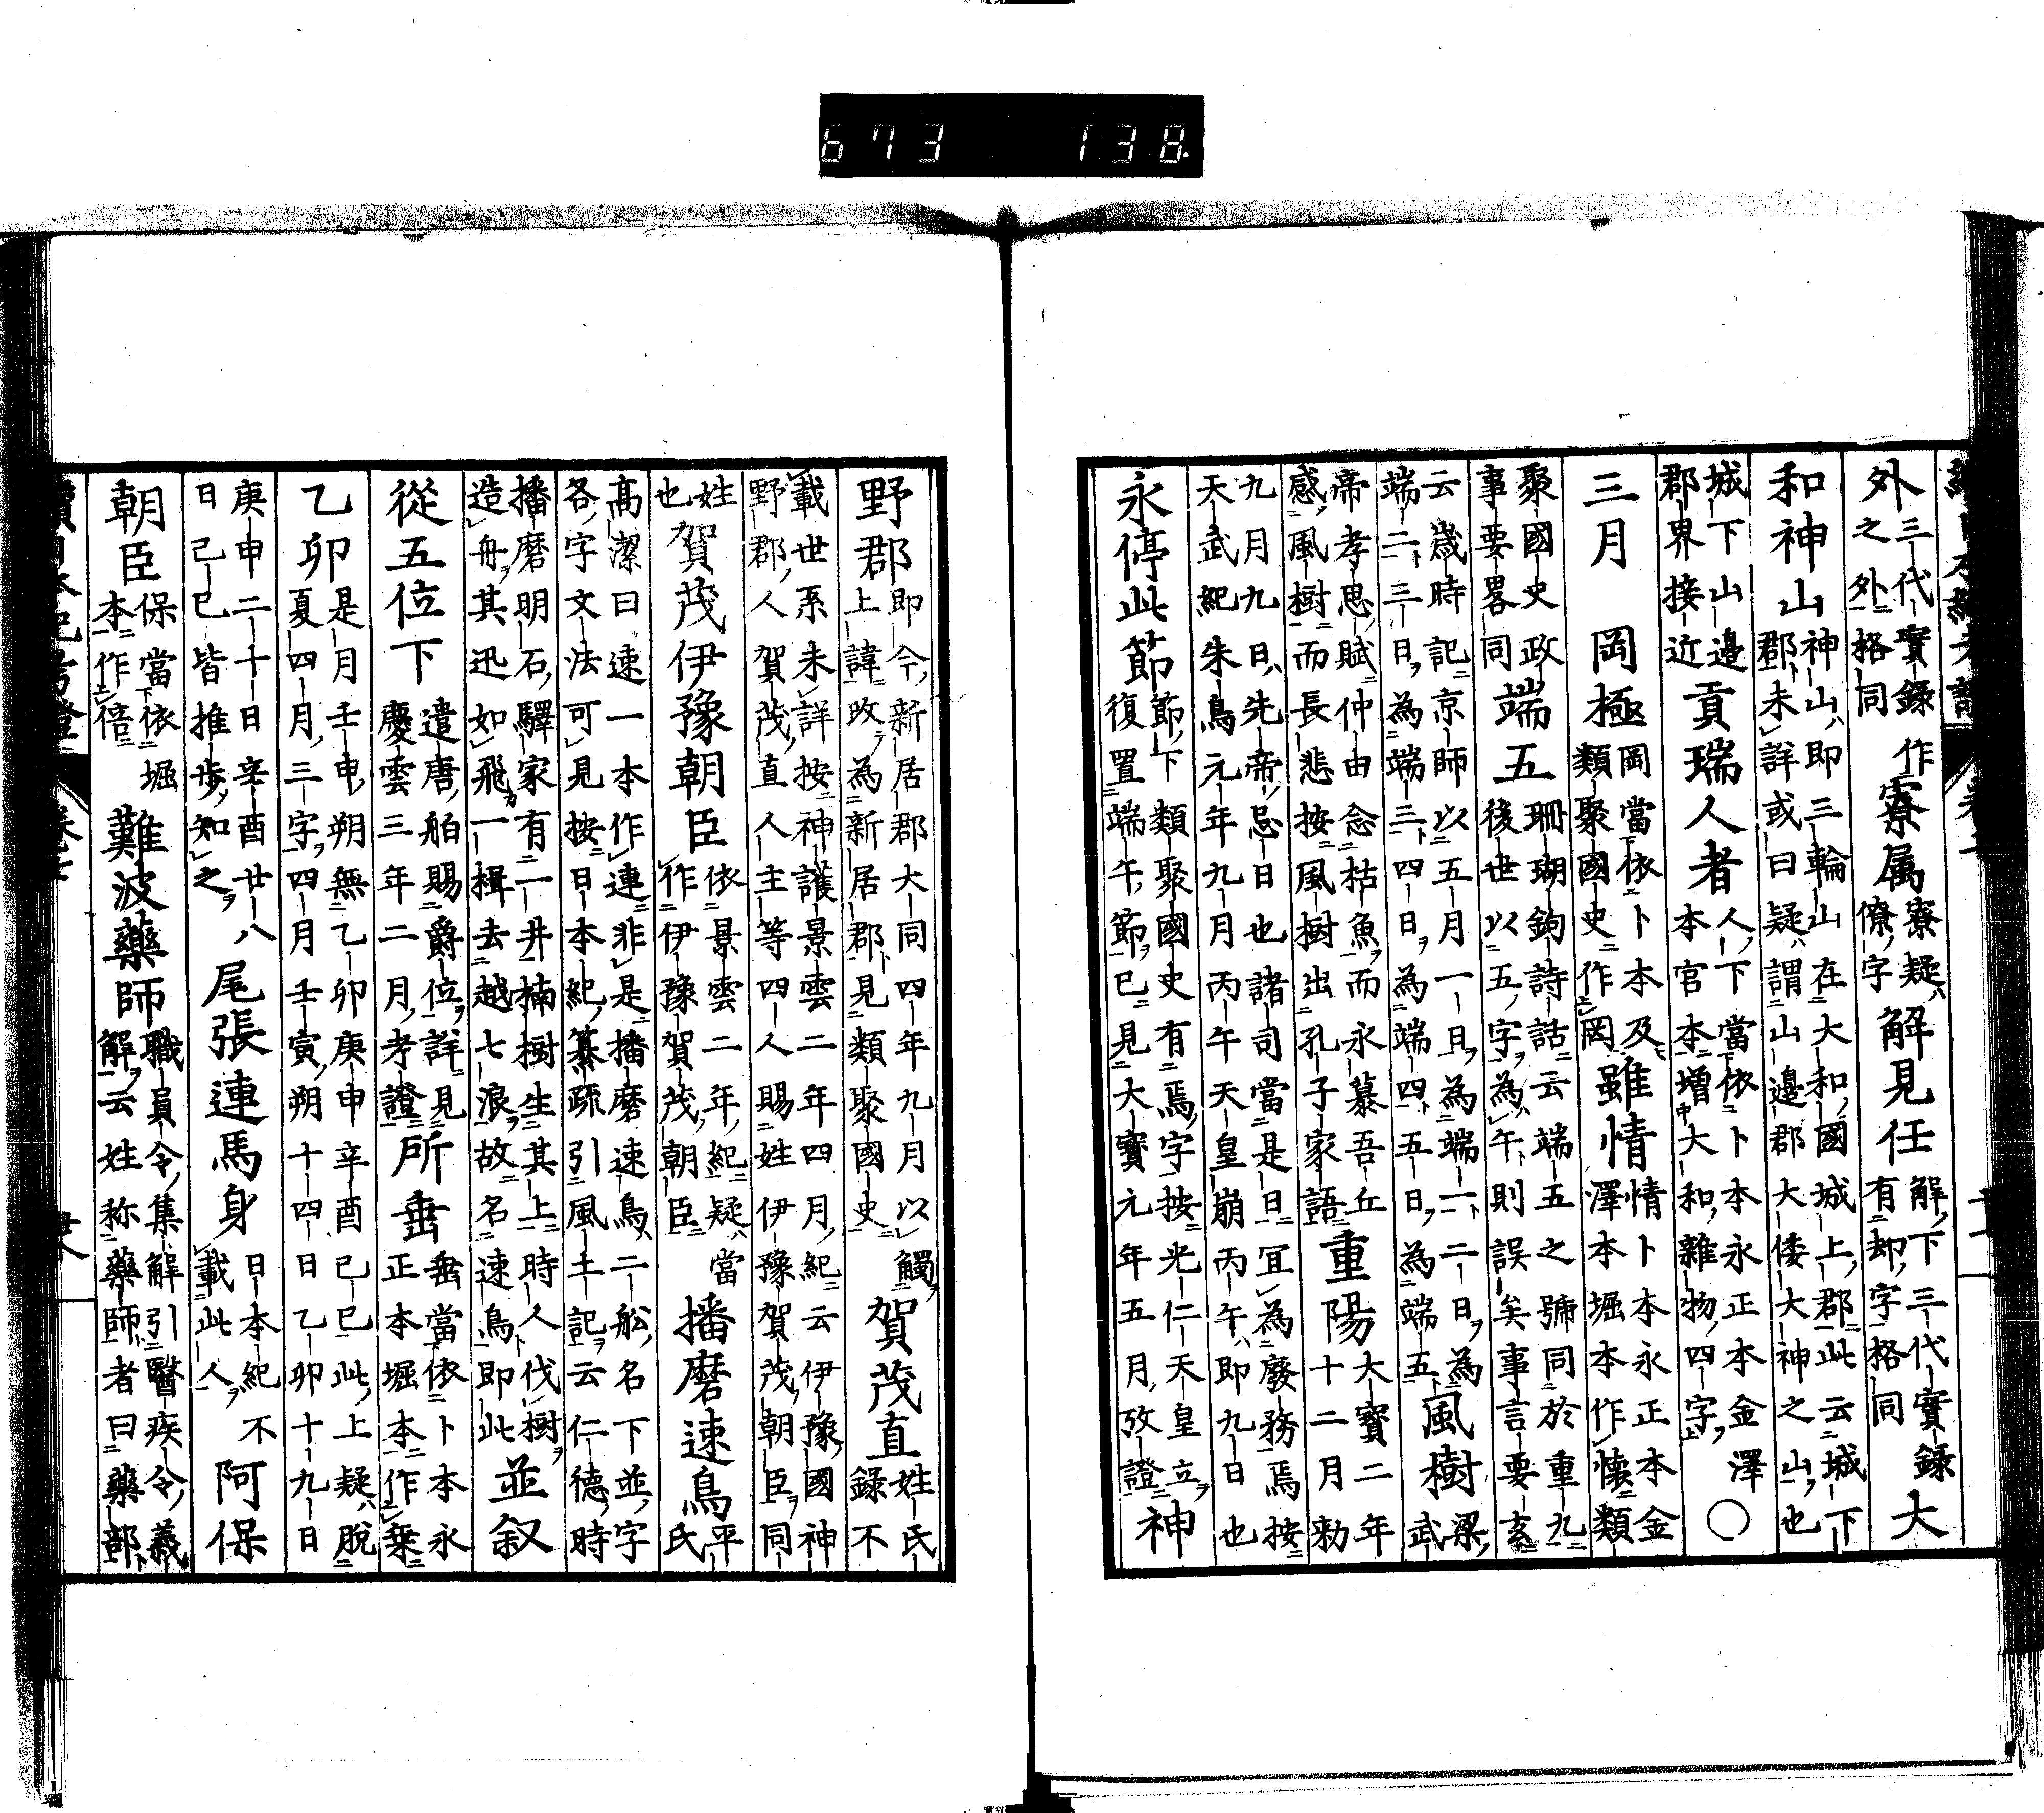 673 138
外三代實錄作
之外格同寮属寮疑
僚字解見任解下三代實錄
有却字格同大
和神山神山即三輪山在大和國城上郡此云城下
郡未詳或曰疑謂山邊郡大倭大神之山也
城下山邊
郡界接近貢瑞人者人下當依卜本永正本金澤
本宮本增大和雜物四字〇
三月岡極岡當依卜本及
類聚國史作罔雖情情卜本永正本金
澤本堀本作懐類
聚國史政
事要畧同端五珊瑚鉤詩話云端五之號同於重九
後世以五字為午則誤矣事言要玄
云歲時記京師以五月一日為端一二日為
端二三日為端三四日為端四五日為端五風樹梁
武
帝孝思賦仲由念枯魚而永慕吾丘
感風樹而長悲按風樹出孔子家語重陽大寶二年
十二月勅
九月九日先帝忌日也諸司當是日宜為廢務焉按
天武紀朱鳥元年九月丙午天皇崩丙午即九日也
永停此節節下類聚國史有焉字按光仁天皇立
復置端午節已見大寶元年五月攷證神
野郡即今新居郡大同四年九月以觸
上諱改為新居郡見類聚國史賀茂直姓氏
錄不
載世系未詳按神護景雲二年四月紀云伊豫國神
野郡人賀茂直人主等四人賜姓伊豫賀茂朝臣同
姓
也賀茂伊豫朝臣依景雲二年紀疑當
作伊豫賀茂朝臣播磨速鳥平
氏
髙潔曰速一本作連非是播磨速鳥二舩名下並字
各字文法可見按日本紀纂疏引風土記云仁德時
播磨明石驛家有一井楠樹生其上時人伐樹
造舟其迅如飛一揖去越七浪故名速鳥即此並叙
從五位下遣唐舶賜爵位詳見
慶雲三年二月考證所垂垂當依卜本永
正本堀本作乗
乙卯是月壬申朔無乙卯庚申辛酉己巳此上疑脫
夏四月三字四月壬寅朔十四日乙卯十九日
庚申二十日辛酉廿八
日己巳皆推步知之尾張連馬身日本紀不
載此人阿保
朝臣保當依堀
本作倍難波藥師職員令集解引醫疾令義
解云姓称藥師者曰藥部